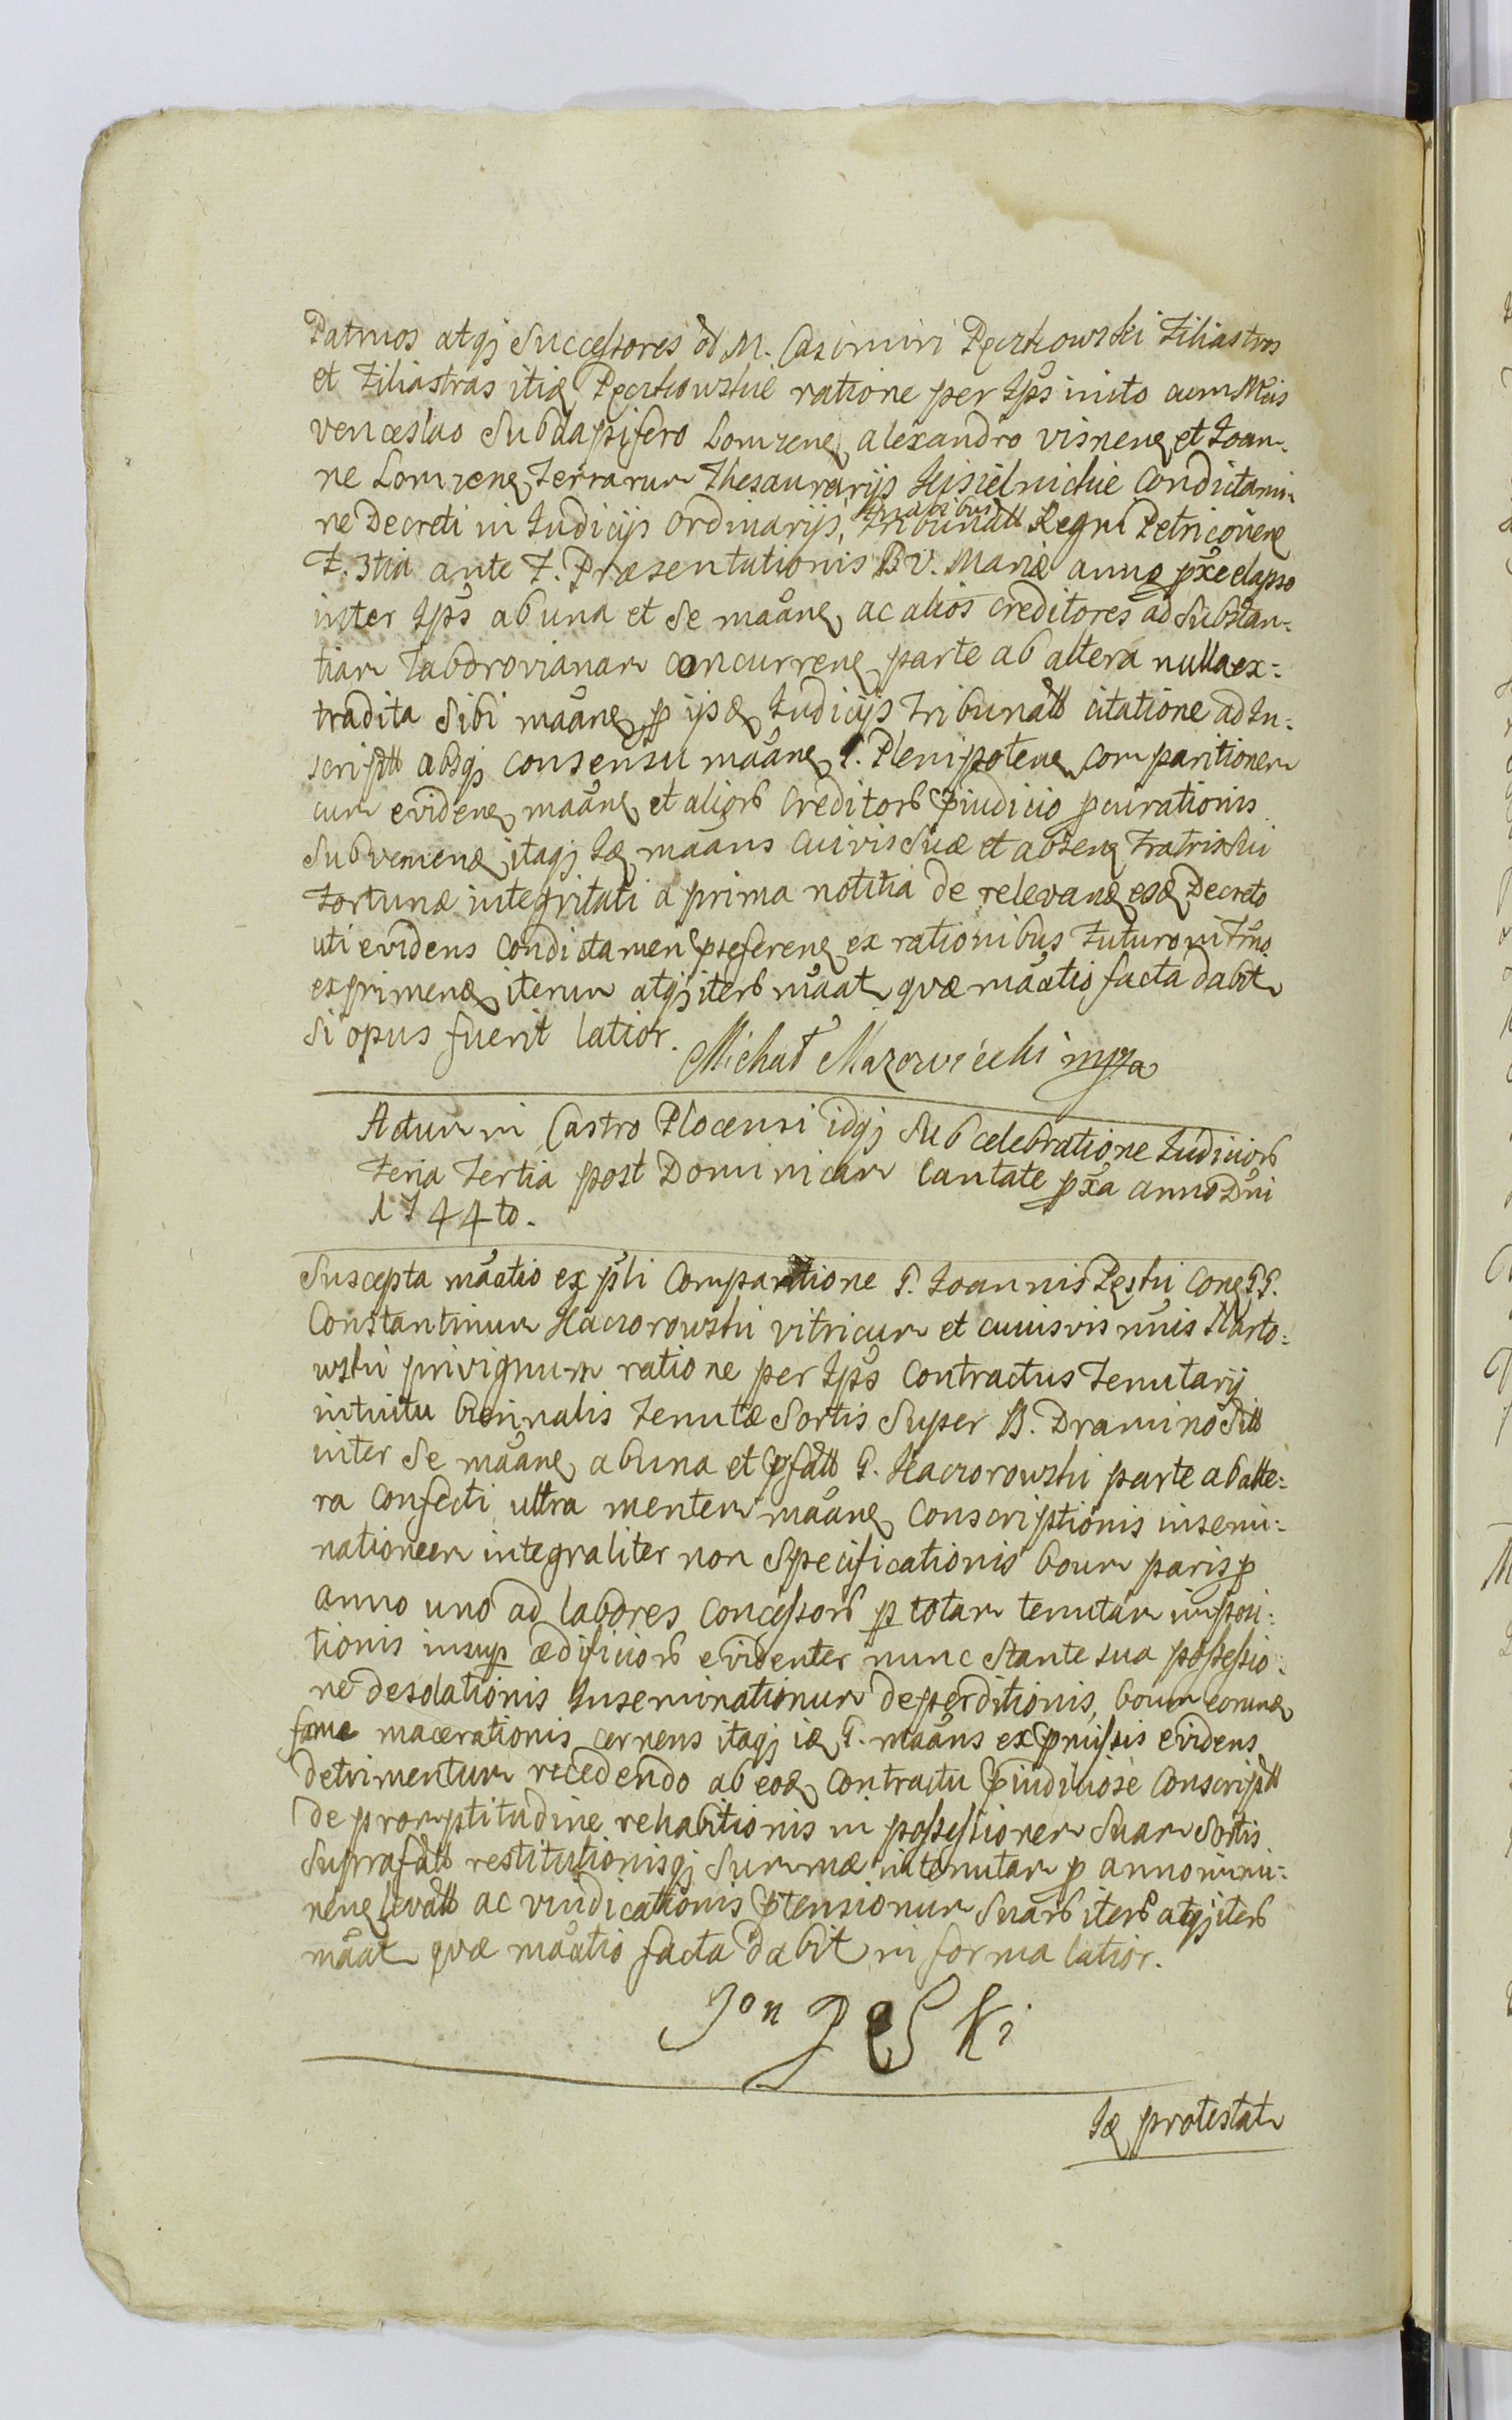 Patruos atqj Successores od M. Casimiri Pęczkowski Filiastros
et Filiastras itidę Pęczkowskie ratione per Ips inito cum MCis
venceslao Subdapifero Lomzenę, alexandro visnenę et Joan-
ne Lomzenę Terrarum Thesaurarijs Kisielnickie Condictami-
ne Decreti in Judicijs Ordinarijs, Gnalibus Tribunall Regni Petriconenę
F. 3tia ante F. Præsentationis B V. Mariæ anno pxe elapso
inter Ips ab una et Se maanę ac alios creditores ad Substan-
tiam Jabdrovianam concurrenę parte ab altera nulla ex-
tradita Sibi maanę p ijsdę Judicijs Tribunall citatione ad In-
scriptt absqj consensu maanę G. Plenipotenę comparitionem
cum evidenę maanę et alior Creditor piudicio pcurationis
Subvenienę itaqj Idę maans cuivis Suæ et absenę Fratris Sui
Fortunæ integritati a prima notitia de relevandę eodę Decreto
uti evidens Condictamen pseferenę ex rationibus Futuro in Trno
exprimendę iterum atqj iter maat quæ maatio facta dabit
Si opus fuerit latior.
Michał Mazowiecki mpa
Actum in Castro Plocensi idqj Sub celebratione Judicior
Feria Tertia post Dominicam Cantate pxa anno Dni
1744to.
Suscepta maatio ex pli Comparitione G. Joannis Pęski Conę GG.
Constantinum Kaczorowski vitricum et cuiusvis nnis Narto-
wski privignum ratione per Ips Contractus Tenutarij
intuitu biennalis Tenutæ Sortis Super B. Dramino Sitt
inter Se maanę ab una et pfatt G. Kaczorowski parte ab alte-
ra Confecti ultra mentem maanę Conscriptionis insemi-
nationem integraliter non Specificationis boum paris p
anno uno ad labores Concessor p totam tenutam imposi-
tionis insup ædificior evidenter nunc Stante sua possessio-
ne desolationis Inseminationum deperditionis, boum eorundę
fame macerationis cernens itaqj idę G. maans ex pmissis evidens
detrimentum recedendo ab eodę Contractu piudiciose Conscriptt
de promptitudine rehabitionis in possessionem Suam Sortis
Suprafatt restitutionisqj Summæ in tenutam p anno immi-
nenę levatt ac vindicationis ptensionum Suar iter atqj iter
maat quæ maatio facta dabit in forma latior.
Jon PeSki
Idę protestat